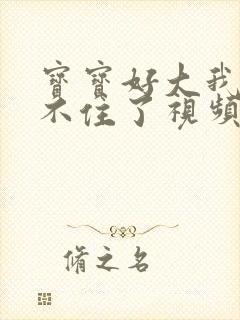 寶寶好大我
不住了視頻
脩之名